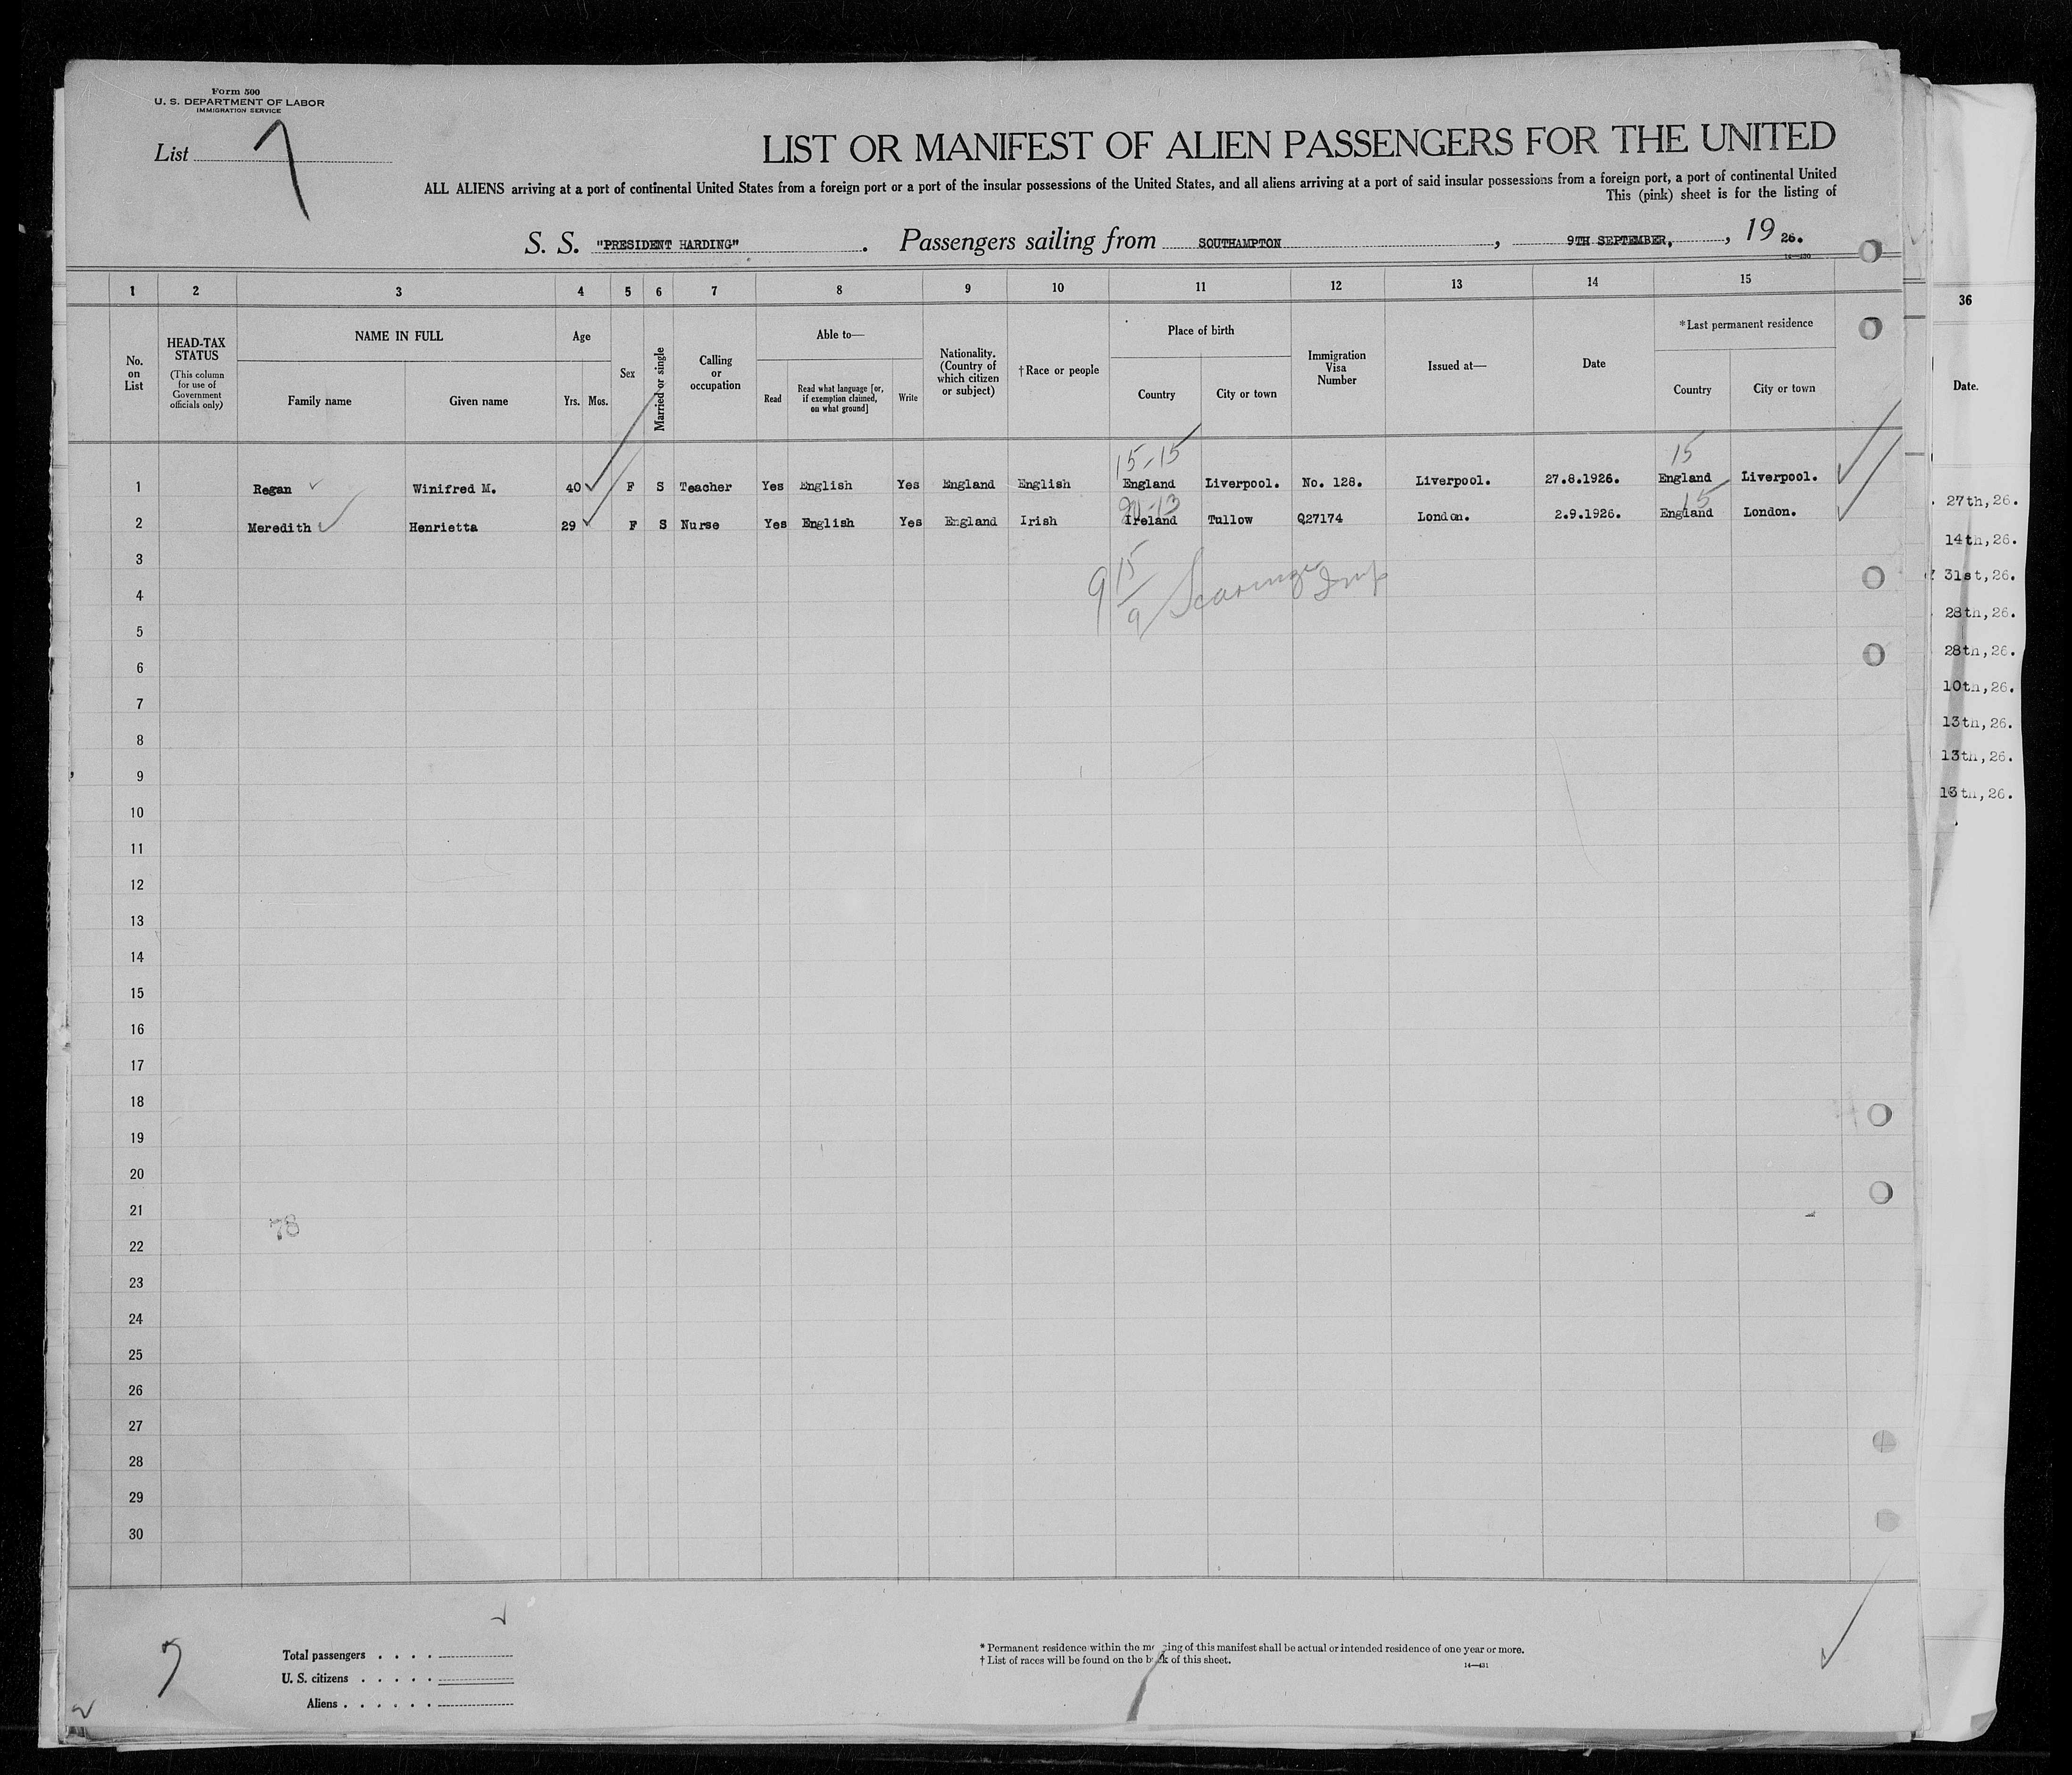 Form 500
U. S. DEPARTMENT OF LABOR
IMMIGRATION SERVICE
List 7
LIST OR MANIFEST OF ALIEN PASSENGERS FOR THE UNITED
ALL ALIENS arriving at a port of continental United States from a foreign port or a port of the insular possessions of the United States, and all aliens arriving at a port of said insular possessions from a foreign port, a port of continental United
This (pink) sheet is for the listing of
S. S. "PRESIDENT HARDING". Passengers sailing from SOUTHAMPTON, 9TH SEPTEMBER, 19 26.
1 2 3 4 5 6 7 8 9 10 11 12 13 14 15
No. on List
HEAD-TAX STATUS
(This column for use of Government officials only)
NAME IN FULL
Family name Given name
Age
Yrs. Mos.
Sex
Married or single
Calling or occupation
Able to—
Read
Read what language [or, if exemption claimed, on what ground]
Write
Nationality. (Country of which citizen or subject)
†Race or people
Place of birth
Country City or town
Immigration Visa Number
Issued at—
Date
*Last permanent residence
Country City or town
15-15 15
1 Regan Winifred M. 40 F S Teacher Yes English Yes England English England Liverpool. No. 128. Liverpool. 27.8.1926. England Liverpool.
15
2 Meredith Henrietta 29 F S Nurse Yes English Yes England Irish Ireland Tullow Q27174 London. 2.9.1926. England London.
3
4
5
6
7
8
9
10
11
12
13
14
15
16
17
18
19
20
21
78
22
23
24
25
26
27
28
29
30
7
Total passengers
U. S. citizens
Aliens
* Permanent residence within the of this manifest shall be actual or intended residence of one year or more.
† List of races will be found on the of this sheet.
14—431
36
Date.
27th,26.
14th,26.
31st,26.
28th,26.
28th,26.
10th,26.
13th,26.
13th,26.
13th,26.